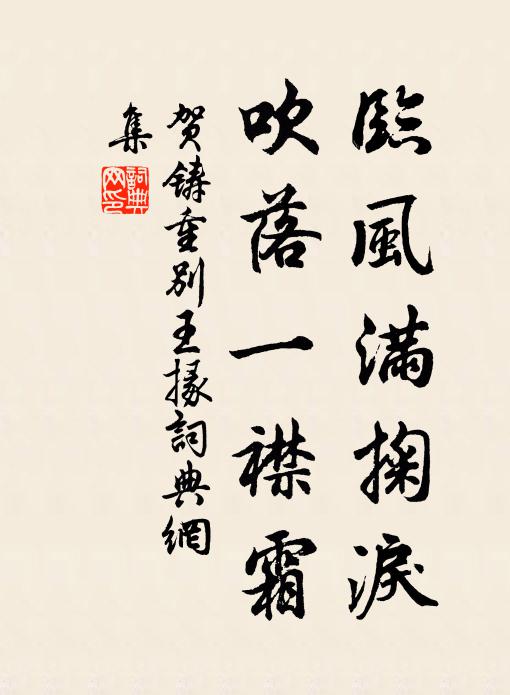 臨風滿掬淚
吹落一襟霜
賀鑄重別王掾詞典網
集
詞典
网印